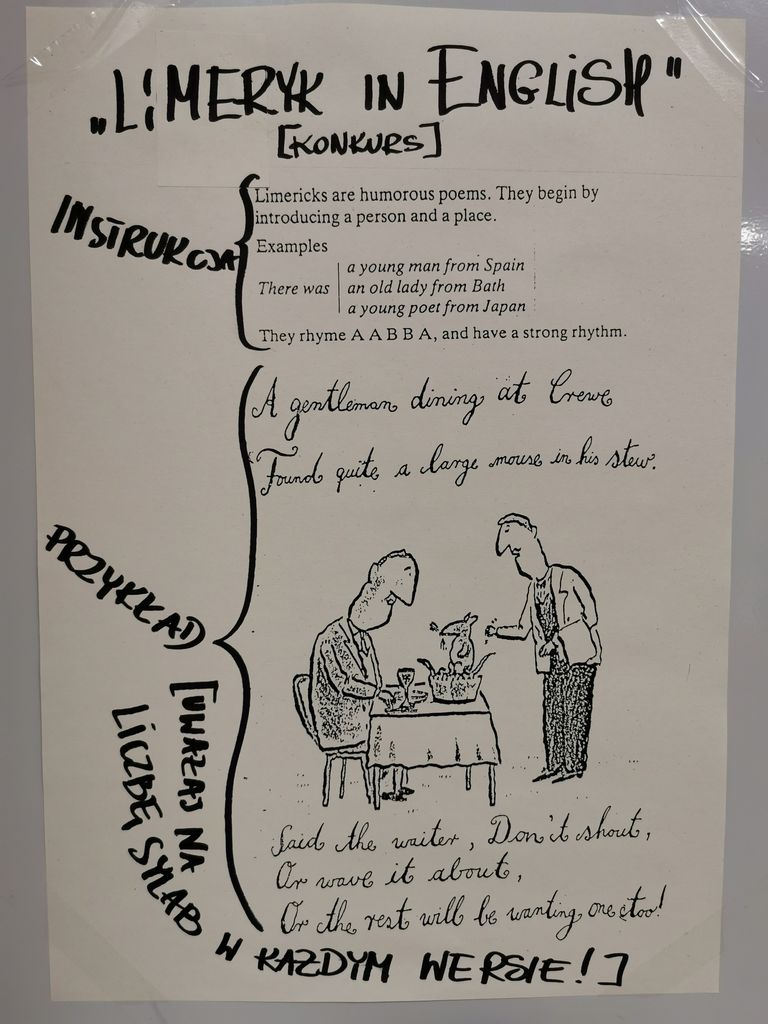 „LIMERYK IN ENGLISH"
[KONKURS]
INSTRUKCJA
Limericks are humorous poems. They begin by
introducing a person and a place.
Examples
There was
a young man from Spain
an old lady from Bath
a young poet from Japan
They rhyme A A B B A, and have a strong rhythm.
PRZYKŁAD
A gentleman dining at Crewe
Found quite a large mouse in his stew.
Said the waiter, Don't shout,
Or wave it about,
Or the rest will be wanting one, too!
[UWAŻAJ NA
LICZBĘ SYLAB
W KAŻDYM WERSIE!]